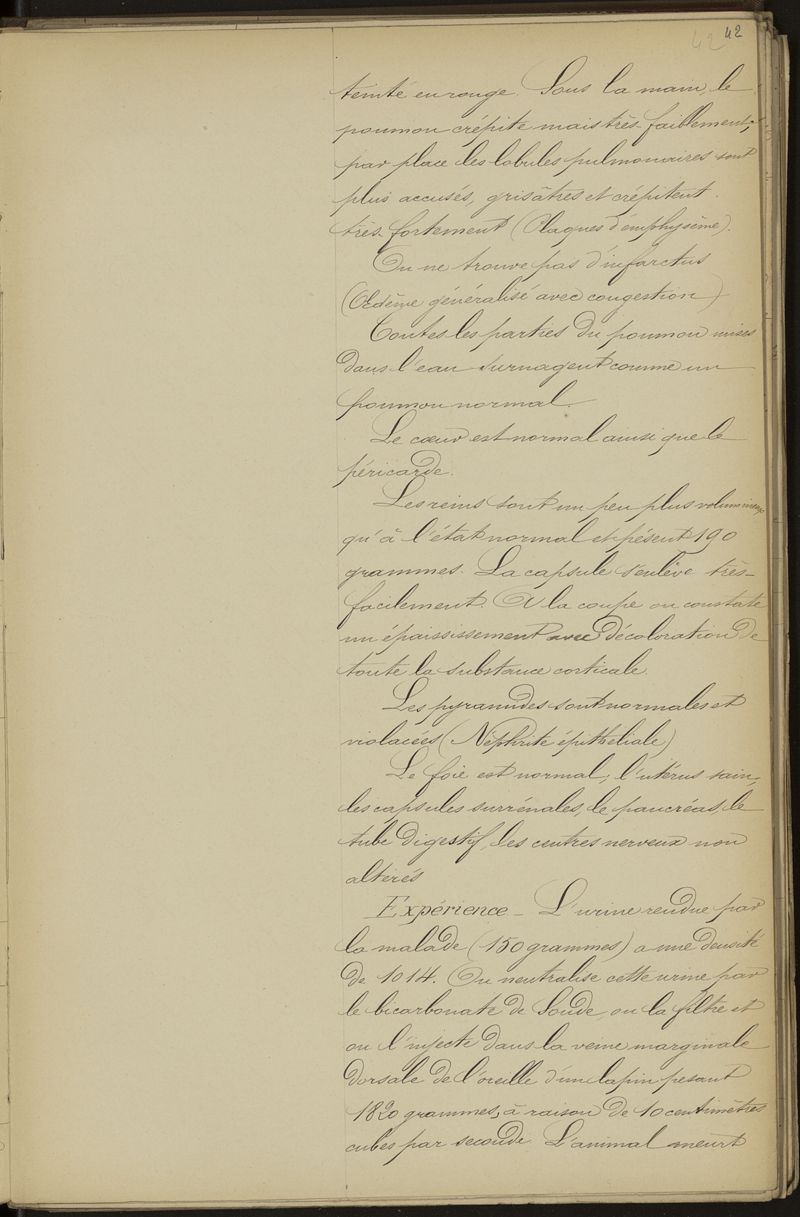 42 42
teinté en rouge. Sous la main le
poumon crépite mais très-faiblement;
par place les lobules pulmonaires sont
plus accusés, grisâtres et crépitent
très-fortement (Plaques d'emphysème).
On ne trouve pas d'infarctus
(Œdème généralisé avec congestion)
Toutes les parties du poumon mises
dans l'eau surnagent comme un
poumon normal.
Le cœur est normal ainsi que le
péricarde.
Les reins sont un peu plus volumineux
qu'à l'état normal et pèsent 190
grammes. La capsule s'enlève très-
facilement. A la coupe on constate
un épaississement avec décoloration de
toute la substance corticale.
Les pyramides sont normales et
violacées (Néphrite épithéliale)
Le foie est normal, l'utérus sain,
les capsules surrénales, le pancréas, le
tube digestif, les centres nerveux non
altérés
Expérience - L'urine rendue par
la malade (150 grammes) a une densité
de 1014. On neutralise cette urine par
le bicarbonate de Soude, on la filtre et
on l'injecte dans la veine marginale
dorsale de l'oreille d'un lapin pesant
1820 grammes, à raison de 10 centimètres
cubes par seconde. L'animal meurt